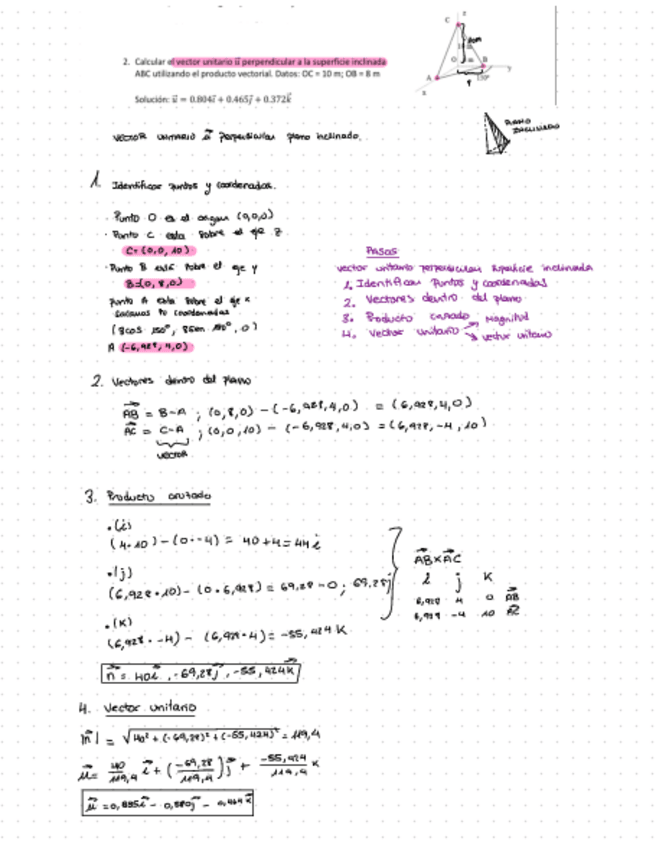 2. Calcular el vector unitario u perpendicular a la superficie inclinada
ABC utilizando el producto vectorial. Datos: OC = 10 m; OB = 8 m
Solución: u⃗ = 0.804i⃗ + 0.465j⃗ + 0.372k⃗
z
C
10m
O
B
y
A
x
PLANO
INCLINADO
VECTOR UNITARIO u⃗ perpendicular plano inclinado.
1. Identificar puntos y coordenadas.
· Punto O es el origen (0,0,0)
· Punto C esta sobre el eje z
C = (0, 0, 10)
· Punto B está sobre el eje y
B = (0, 8, 0)
Punto A esta sobre el eje x
coordenadas
(8cos 150°, 8sen 150°, 0)
A (-6,928, 4, 0)
PASOS
vector unitario perpendicular superficie inclinada
1. Identificar Puntos y coordenadas
2. Vectores dentro del plano
3. Producto cruzado
4. Vector unitario → Magnitud
→ vector unitario
2. Vectores dentro del plano
AB⃗ = B-A ; (0,8,0) - (-6,928,4,0) = (6,928,4,0)
AC⃗ = C-A ; (0,0,10) - (-6,928,4,0) = (6,928,-4,10)
VECTOR
3. Producto cruzado
· (i)
(4·10) - (0·-4) = 40+4 = 44 i
· (j)
(6,928·10) - (0·6,928) = 69,28 - 0 ; 69,28j
· (K)
(6,928·-4) - (6,928·4) = -55,424 K
AB⃗ x AC⃗
i j K
6,928 4 0 AB⃗
6,928 -4 10 AC⃗
n⃗ = 40i⃗, -69,28j⃗, -55,424K⃗
4. Vector unitario
|n⃗| = √40² + (-69,28)² + (-55,424)² = 119,4
u⃗ = 40/119,4 i⃗ + (-69,28/119,4) j⃗ + -55,424/119,4 K
u⃗ = 0,335i⃗ - 0,580j⃗ - 0,464K⃗